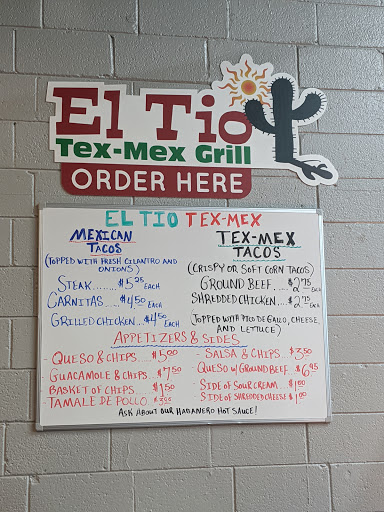 El Tio
Tex-Mex Grill
ORDER HERE
EL TIO TEX-MEX
MEXICAN
TACOS
(TOPPED WITH FRESH CILANTRO AND
ONIONS)
STEAK....... $5.25 EACH
CARNITAS.... $4.50 EACH
GRILLED CHICKEN... $4.50 EACH
TEX-MEX
TACOS
(CRISPY OR SOFT CORN TACOS)
GROUND BEEF. $2.75 EACH
SHREDDED CHICKEN. $2.75 EACH
(TOPPED WITH PICO DE GALLO, CHEESE,
AND LETTUCE)
APPETIZERS & SIDES
- QUESO & CHIPS... $5.00
- GUACAMOLE & CHIPS.. $7.50
- BASKET OF CHIPS... $1.50
- TAMALE DE POLLO.. $3.00
- SALSA & CHIPS.. $3.50
QUESO W/ GROUND BEEF. $6.95
- SIDE OF SOUR CREAM.. $1.00
- SIDE OF SHREDDED CHEESE $1.00
ASK ABOUT OUR HABANERO HOT SAUCE!